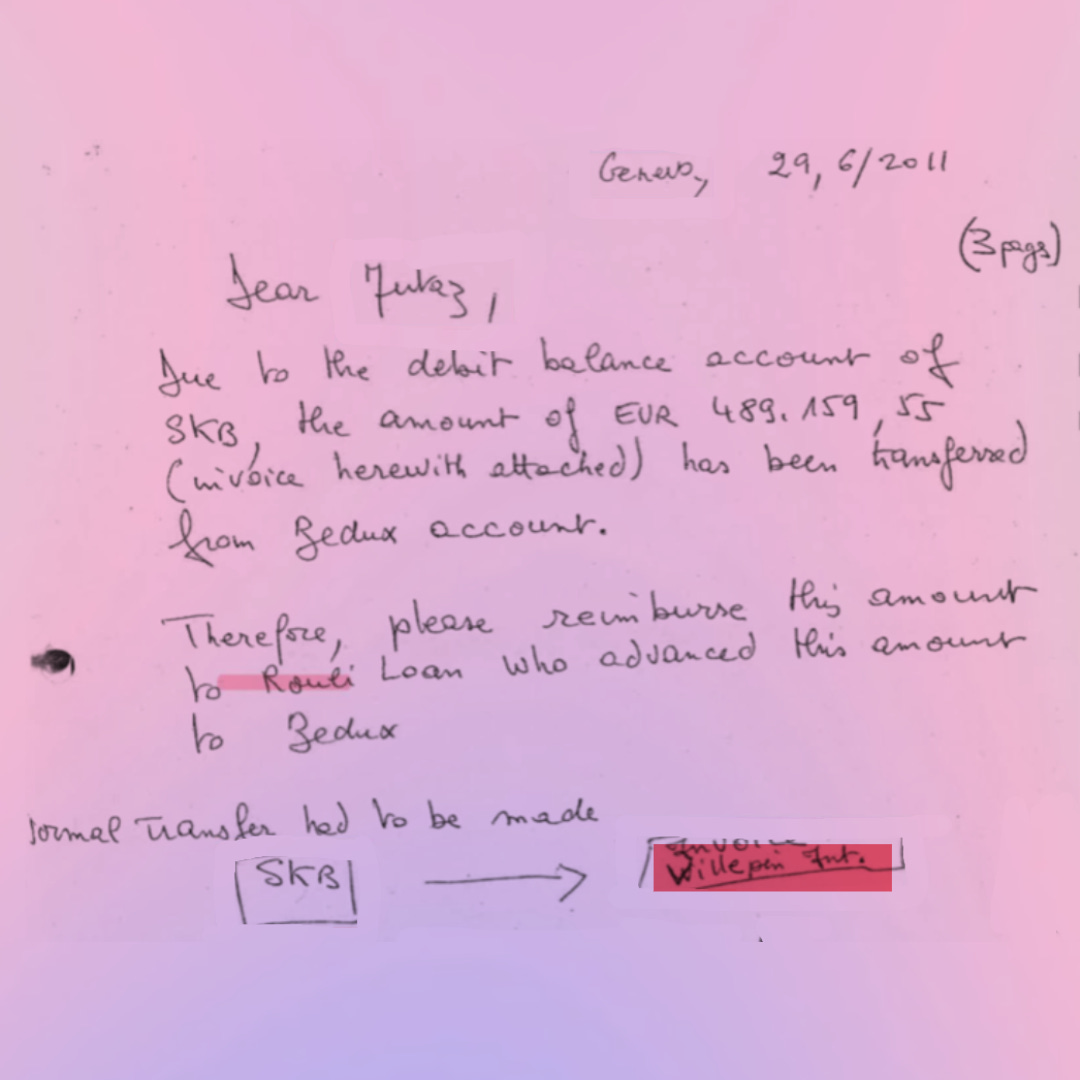 Geneva, 29, 6/2011
(3 pages)
Dear
Due to the debit balance account of
SKB, the amount of EUR 489.159,55
(invoice herewith attached) has been transferred
from Zedux account.
Therefore, please reimburse this amount
to Rouli Loan who advanced this amount
to Zedux
Normal Transfer had to be made
SKB
Invoice
Willepin Int.